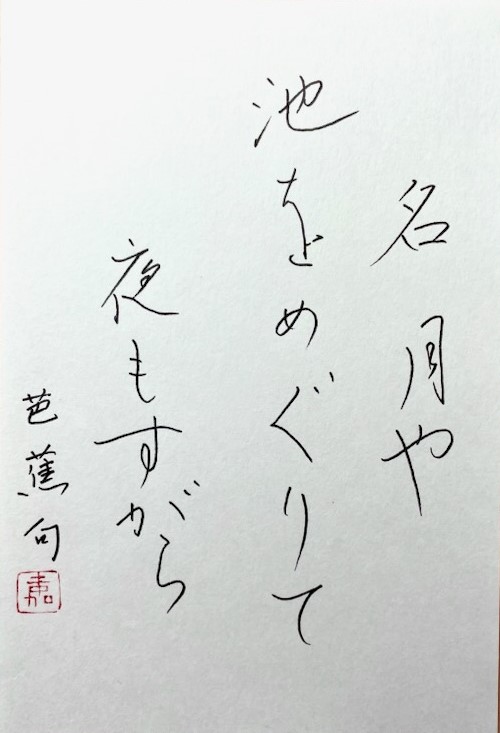 名月や
池をめぐりて
夜もすがら
芭蕉句
嘉